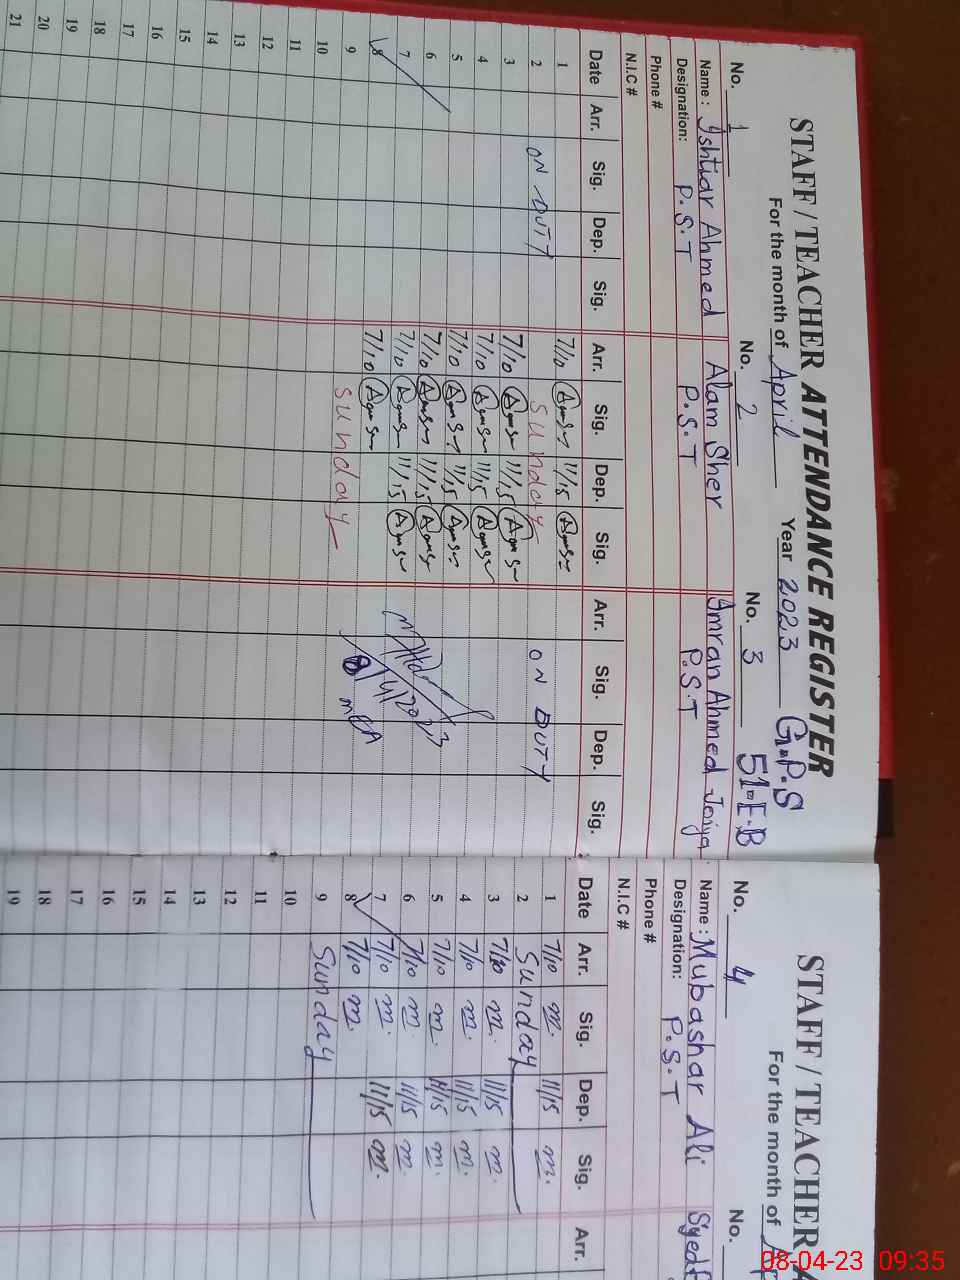 STAFF / TEACHER ATTENDANCE REGISTER
G.P.S
51-E.B
For the month of April Year 2023
No. 1 No. 2 No. 3
Name : Ishtiar Ahmed Alam Sher Imran Ahmed Joiya
Designation: P.S.T P.S.T P.S.T
Phone #
N.I.C #
Date Arr. Sig. Dep. Sig. Arr. Sig. Dep. Sig. Arr. Sig. Dep. Sig.
1 7/10 11/15
2 ON DUTY Sunday ON DUTY
3 7/10 11/15
4 7/10 11/15
5 7/10 11/15
6 7/10 11/15
7 7/10 11/15
8 7/10
8/4/2023
MEA
9 Sunday
10
11
12
13
14
15
16
17
18
19
20
21
STAFF / TEACHER A
For the month of
No. 4 No.
Name : Mubashar Ali Syed
Designation: P.S.T
Phone #
N.I.C #
Date Arr. Sig. Dep. Sig. Arr.
1 7/10 m. 11/15 m.
2 Sunday
3 7/10 m. 11/15 m.
4 7/10 m. 11/15 m.
5 7/10 m. 11/15 m.
6 7/10 m. 11/15 m.
7 7/10 m. 11/15 m.
8 7/10 m.
9 Sunday
10
11
12
13
14
15
16
17
18
19
08-04-23 09:35